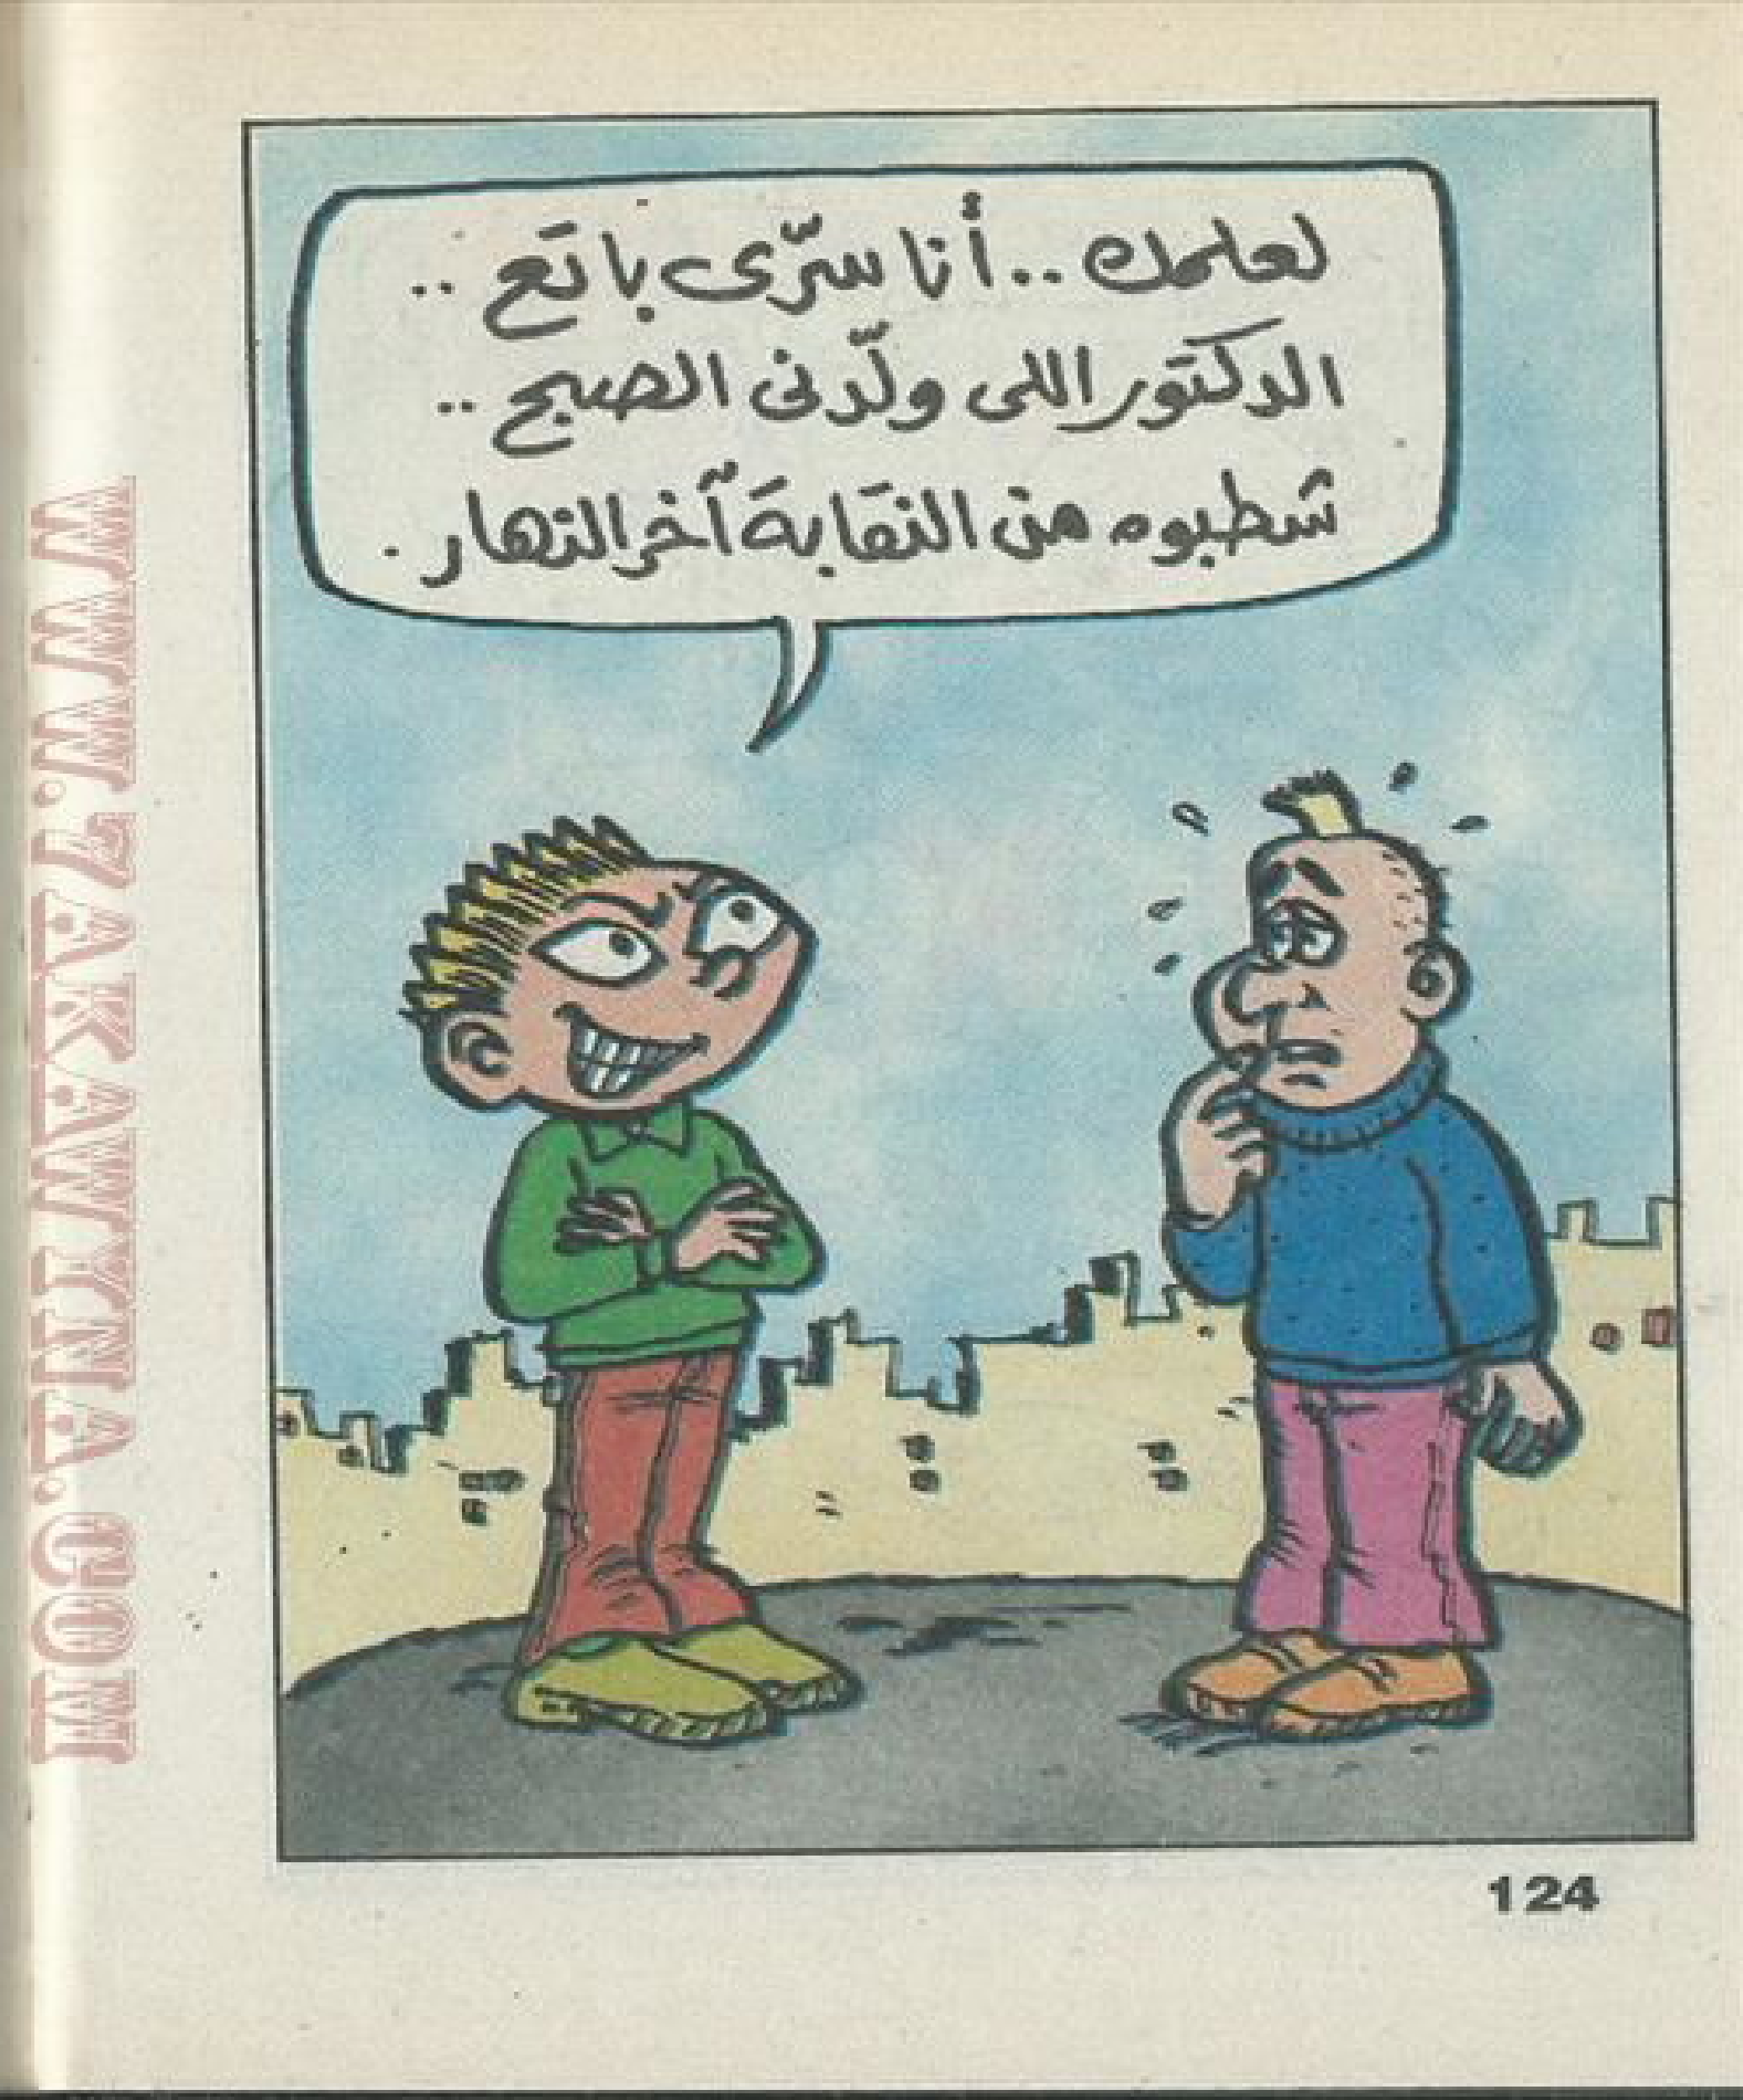 لعلمك .. أنا سرّى باتع ..
الدكتور اللى ولّدنى الصبح ..
شطبوه من النقابة آخر النهار .
124
WWW.7AKAWINA.COM